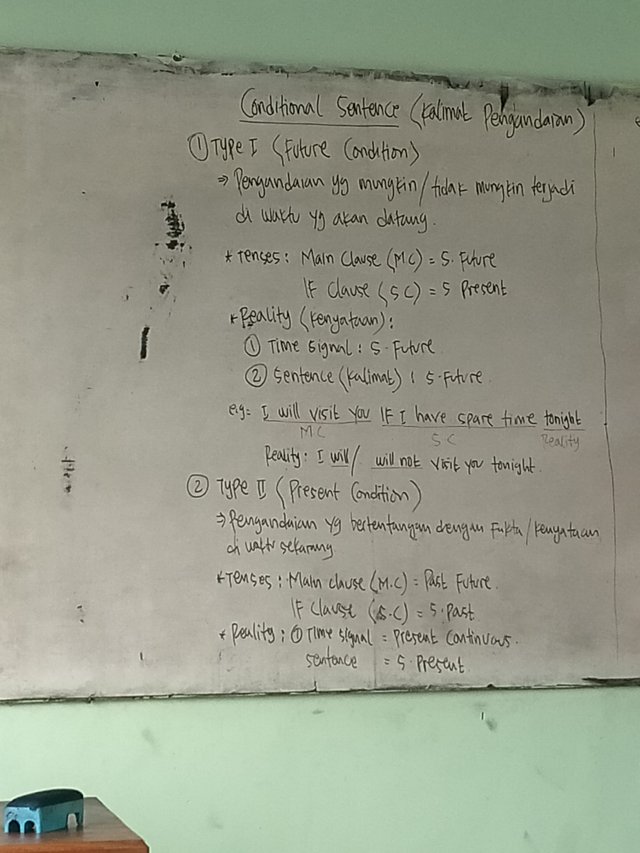 Conditional Sentence (Kalimat Pengandaian)
① Type I (Future Condition)
⇒ Pengandaian yg mungkin/tidak mungkin terjadi
di waktu yg akan datang.
* Tenses : Main Clause (MC) = S. Future
IF Clause (SC) = S Present
* Reality (Kenyataan) :
① Time Signal : S. Future
② Sentence (Kalimat) : S. Future
e.g = I will visit you IF I have spare time tonight
MC SC Reality
Reality : I will / will not visit you tonight.
② Type II (Present Condition)
⇒ Pengandaian yg bertentangan dengan Fakta/kenyataan
di waktu sekarang
* Tenses : Main clause (M.C) = Past Future.
IF Clause (S.C) = S. Past
* Reality : ① Time Signal = Present Continuous.
Sentence = S. Present.